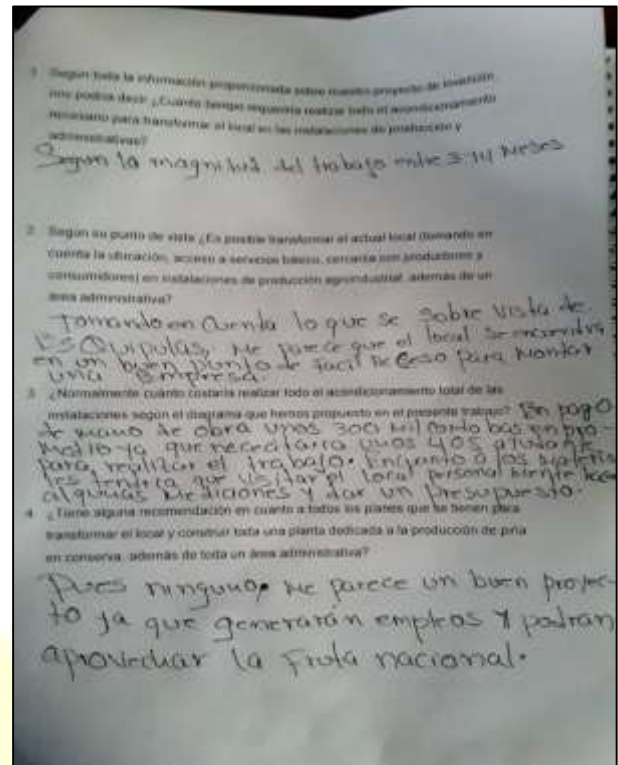 1 Según toda la información proporcionada sobre nuestro proyecto de inversión,
nos podría decir ¿Cuánto tiempo requeriría realizar todo el acondicionamiento
necesario para transformar el local en las instalaciones de producción y
administrativas?
Segun la magnitud del trabajo entre 3 y 4 Meses
2 Según su punto de vista ¿Es posible transformar el actual local (tomando en
cuenta la ubicación, acceso a servicios básico, cercanía con productores y
consumidores) en instalaciones de producción agroindustrial, además de un
área administrativa?
Tomando en Cuenta lo que se sobre vista de
Esquipulas, Me parece que el local Se encuentra
en un buen punto de facil acceso para Montar
una Empresa.
3 ¿Normalmente cuánto costaría realizar todo el acondicionamiento total de las
instalaciones según el diagrama que hemos propuesto en el presente trabajo? En pago
de mano de obra unos 300 Mil Cordobas en pro-
Medio ya que necesitaria unos 4 o 5
para realizar el trabajo. Encuanto a los
tendria que visitar el local personal Mente
algunas Mediciones y dar un Presupuesto.
4 ¿Tiene alguna recomendación en cuanto a todos los planes que se tienen para
transformar el local y construir toda una planta dedicada a la producción de piña
en conserva, además de toda un área administrativa?
Pues ninguno. Me parece un buen proyec-
to ya que generarán empleos y podran
aprovechar la Fruta nacional.